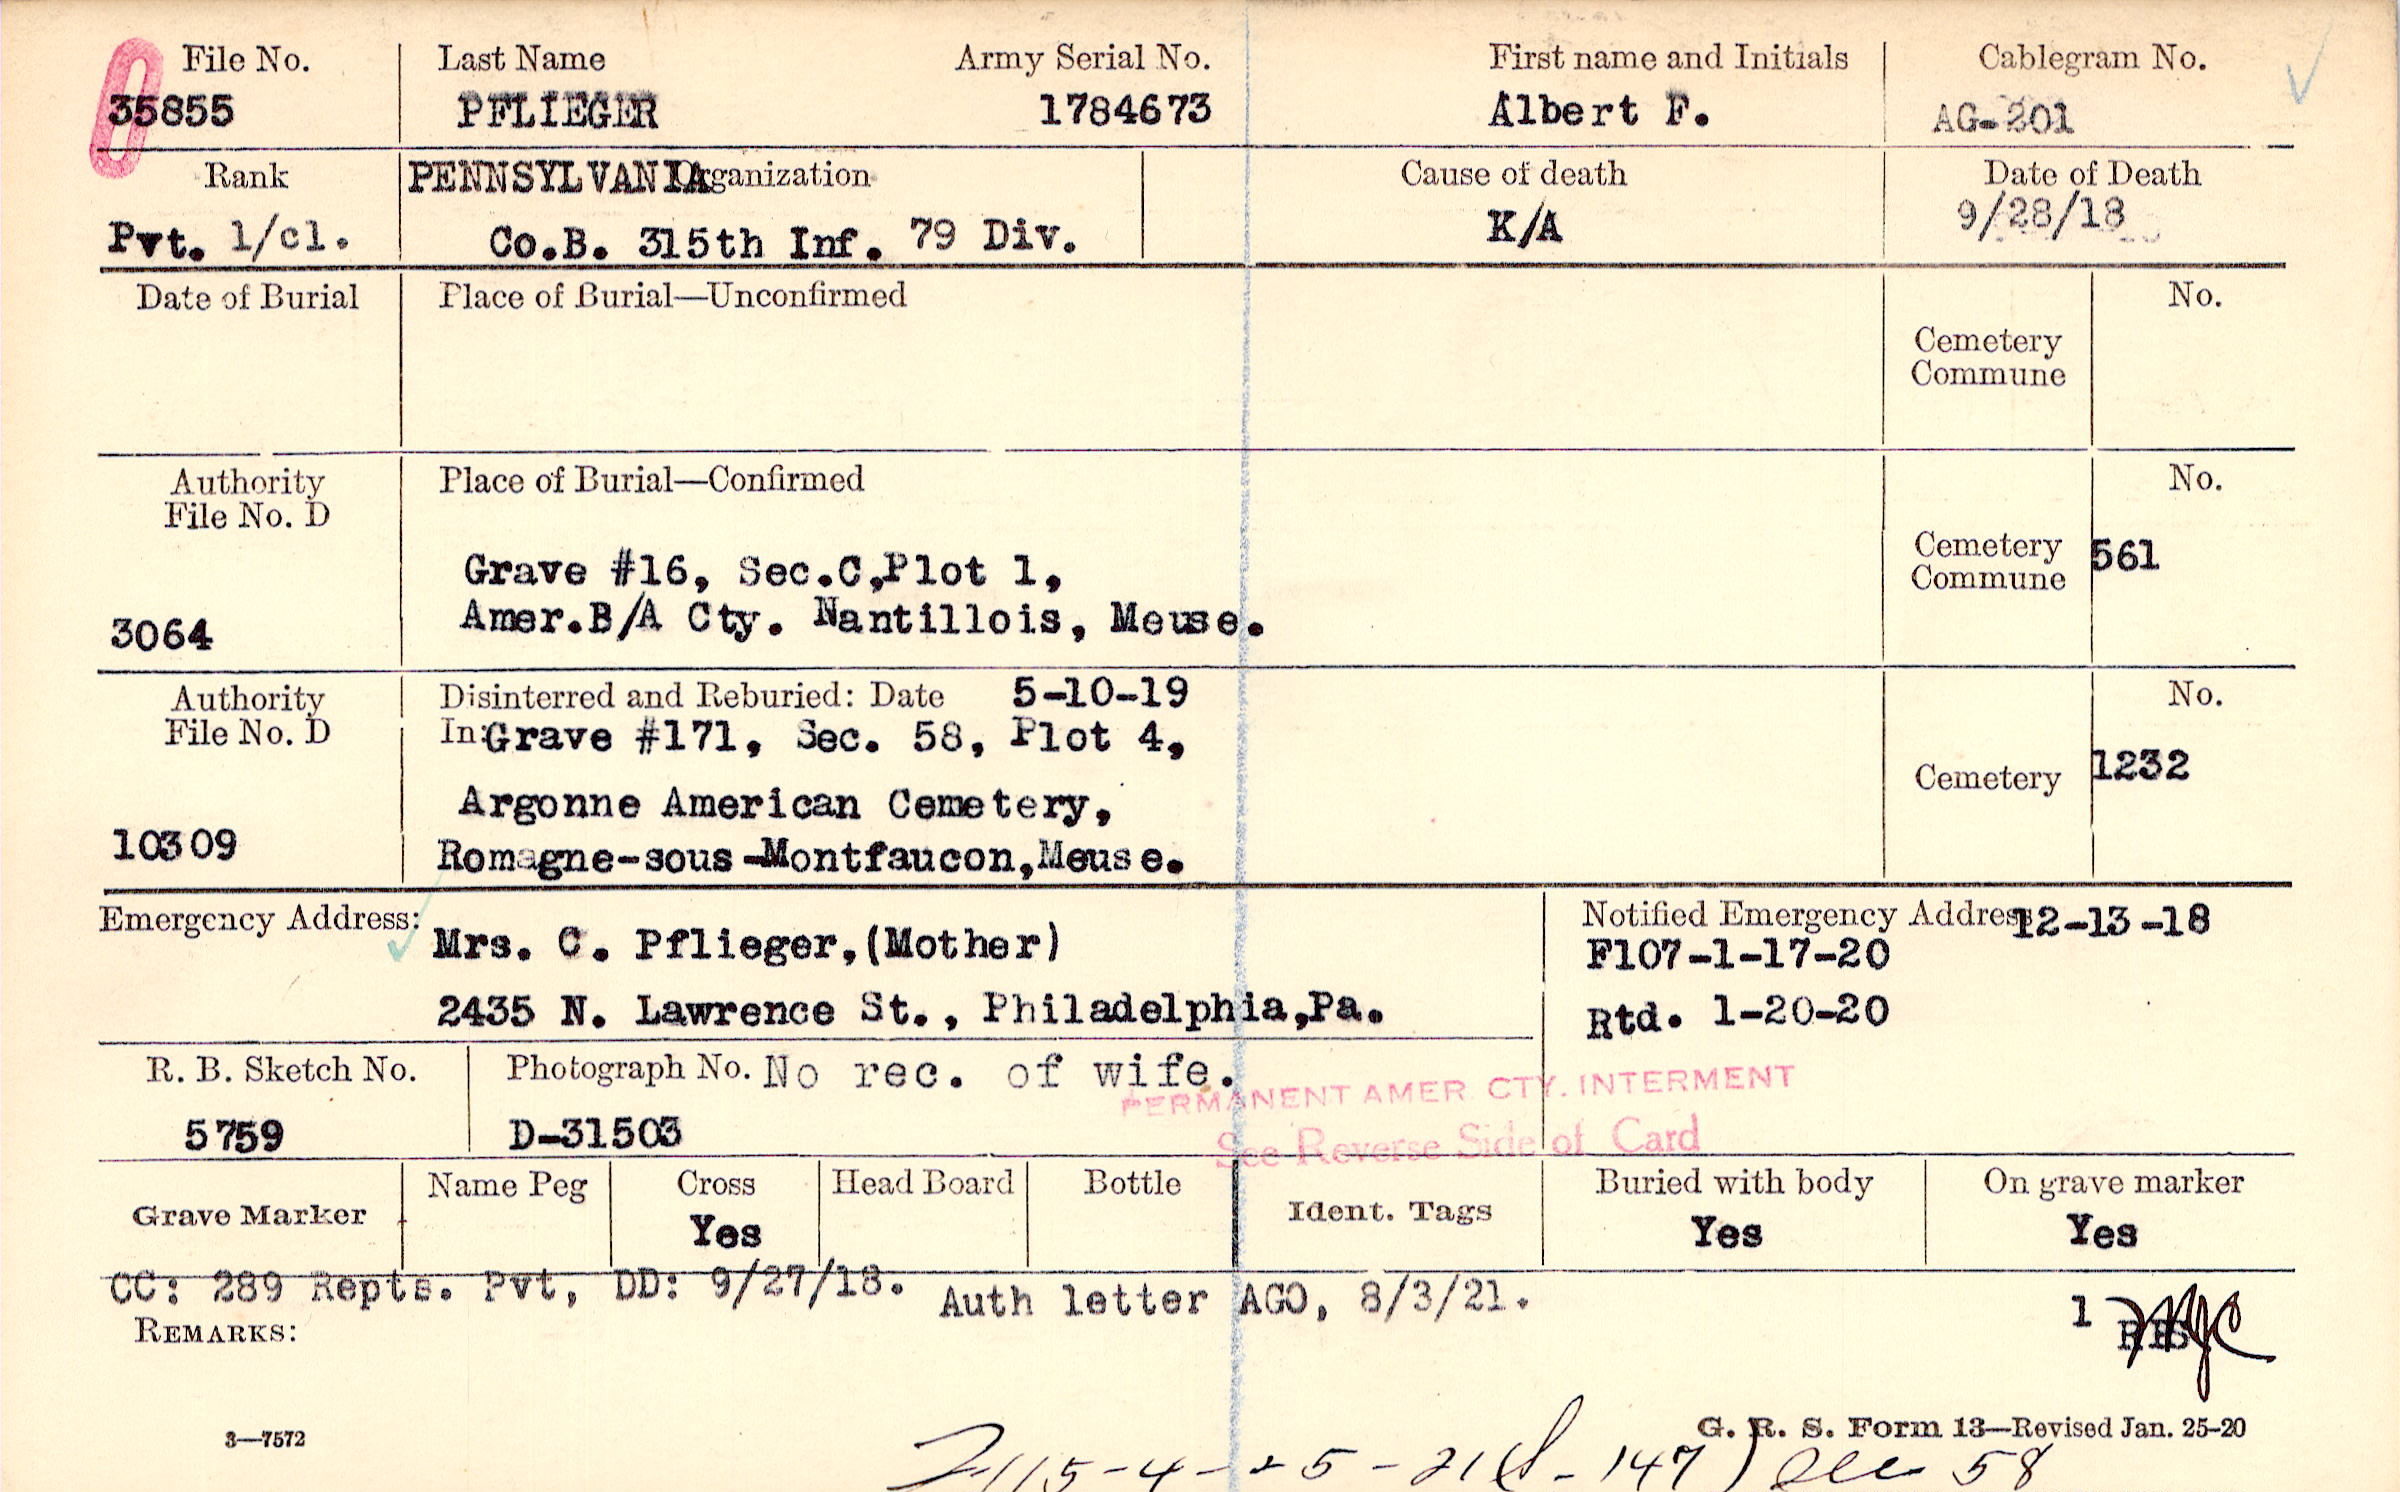 File No. Last Name Army Serial No. First name and Initials Cablegram No.
35855 PFLIEGER 1784673 Albert F. AG-201
Rank PENNSYLVANIA Organization Cause of death Date of Death
Pvt. 1/cl. Co.B. 315th Inf. 79 Div. K/A 9/28/18
Date of Burial Place of Burial—Unconfirmed No.
Cemetery
Commune
Authority Place of Burial—Confirmed No.
File No. D
Grave #16, Sec.C,Plot 1, Cemetery 561
Commune
3064 Amer.B/A Cty. Nantillois, Meuse.
Authority Disinterred and Reburied: Date 5-10-19 No.
File No. D In:Grave #171, Sec. 58, Plot 4,
Cemetery 1232
Argonne American Cemetery,
10309 Romagne-sous-Montfaucon,Meuse.
Emergency Address: Mrs. C. Pflieger,(Mother) Notified Emergency Address 12-13-18
F107-1-17-20
2435 N. Lawrence St., Philadelphia,Pa. Rtd. 1-20-20
R. B. Sketch No. Photograph No. No rec. of wife.
PERMANENT AMER. CTY. INTERMENT
5759 D-31503 See Reverse Side of Card
Grave Marker Name Peg Cross Head Board Bottle Ident. Tags Buried with body On grave marker
Yes Yes Yes
CC: 289 Repts. Pvt, DD: 9/27/18. Auth letter AGO, 8/3/21. 1
REMARKS:
3—7572 G. R. S. Form 13—Revised Jan. 25-20
115-4-25-21 147) Sec 58